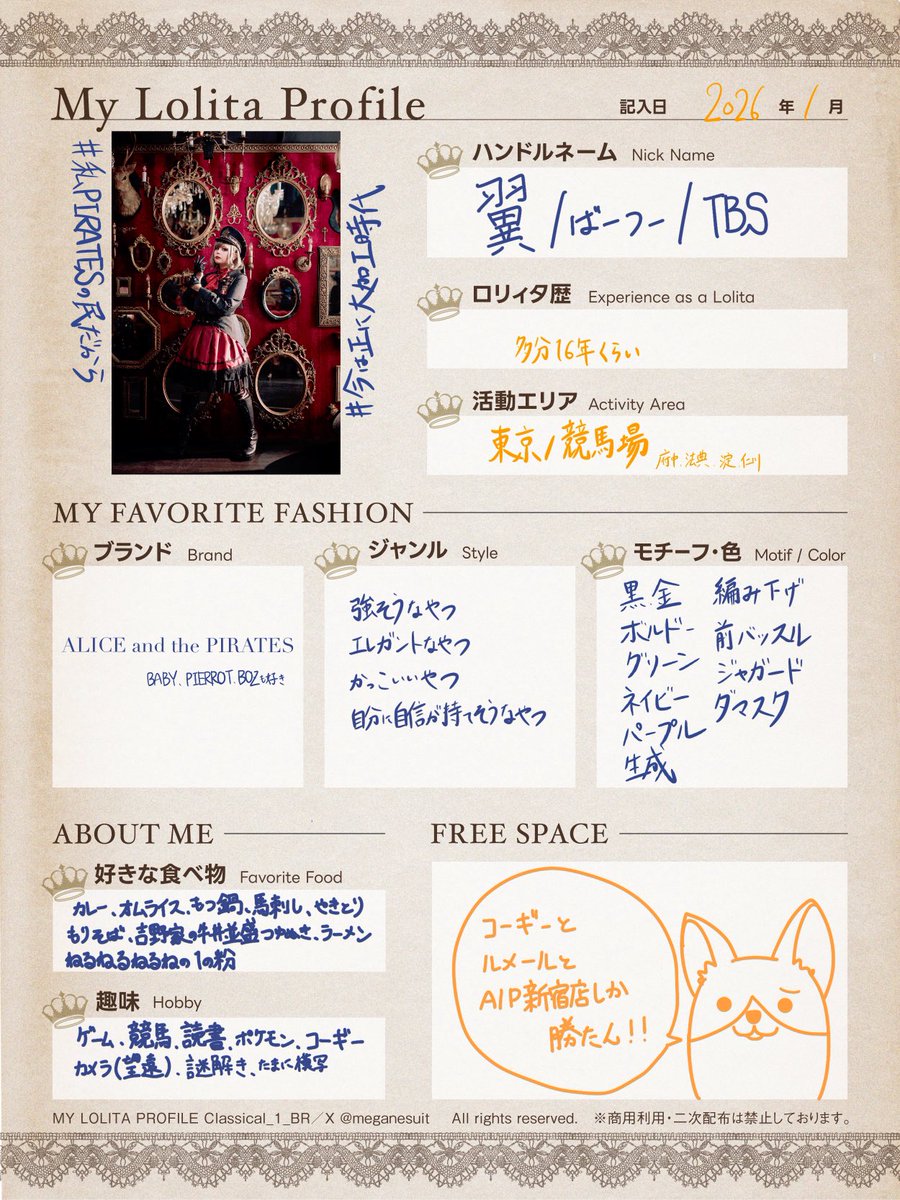 My Lolita Profile
記入日 2026 年 1 月
#私PIRATESの民だから
#今は正に大加工時代
ハンドルネーム Nick Name
翼/ばーつー/TBS
ロリィタ歴 Experience as a Lolita
多分16年くらい
活動エリア Activity Area
東京/競馬場 府中、法典、淀、仁川
MY FAVORITE FASHION
ブランド Brand
ALICE and the PIRATES
BABY、PIERROT、BOZも好き
ジャンル Style
強そうなやつ
エレガントなやつ
かっこいいやつ
自分に自信が持てそうなやつ
モチーフ・色 Motif / Color
黒、金
ボルドー
グリーン
ネイビー
パープル
生成
編み下げ
前バッスル
ジャガード
ダマスク
ABOUT ME
好きな食べ物 Favorite Food
カレー、オムライス、もつ鍋、馬刺し、やきとり
もりそば、吉野家の牛丼並盛つゆぬき、ラーメン
ねるねるねるねの1の粉
趣味 Hobby
ゲーム、競馬、読書、ポケモン、コーギー
カメラ(望遠)、謎解き、たまに模写
FREE SPACE
コーギーと
ルメールと
AIP新宿店しか
勝たん!!
MY LOLITA PROFILE Classical_1_BR/X @meganesuit All rights reserved. ※商用利用・二次配布は禁止しております。